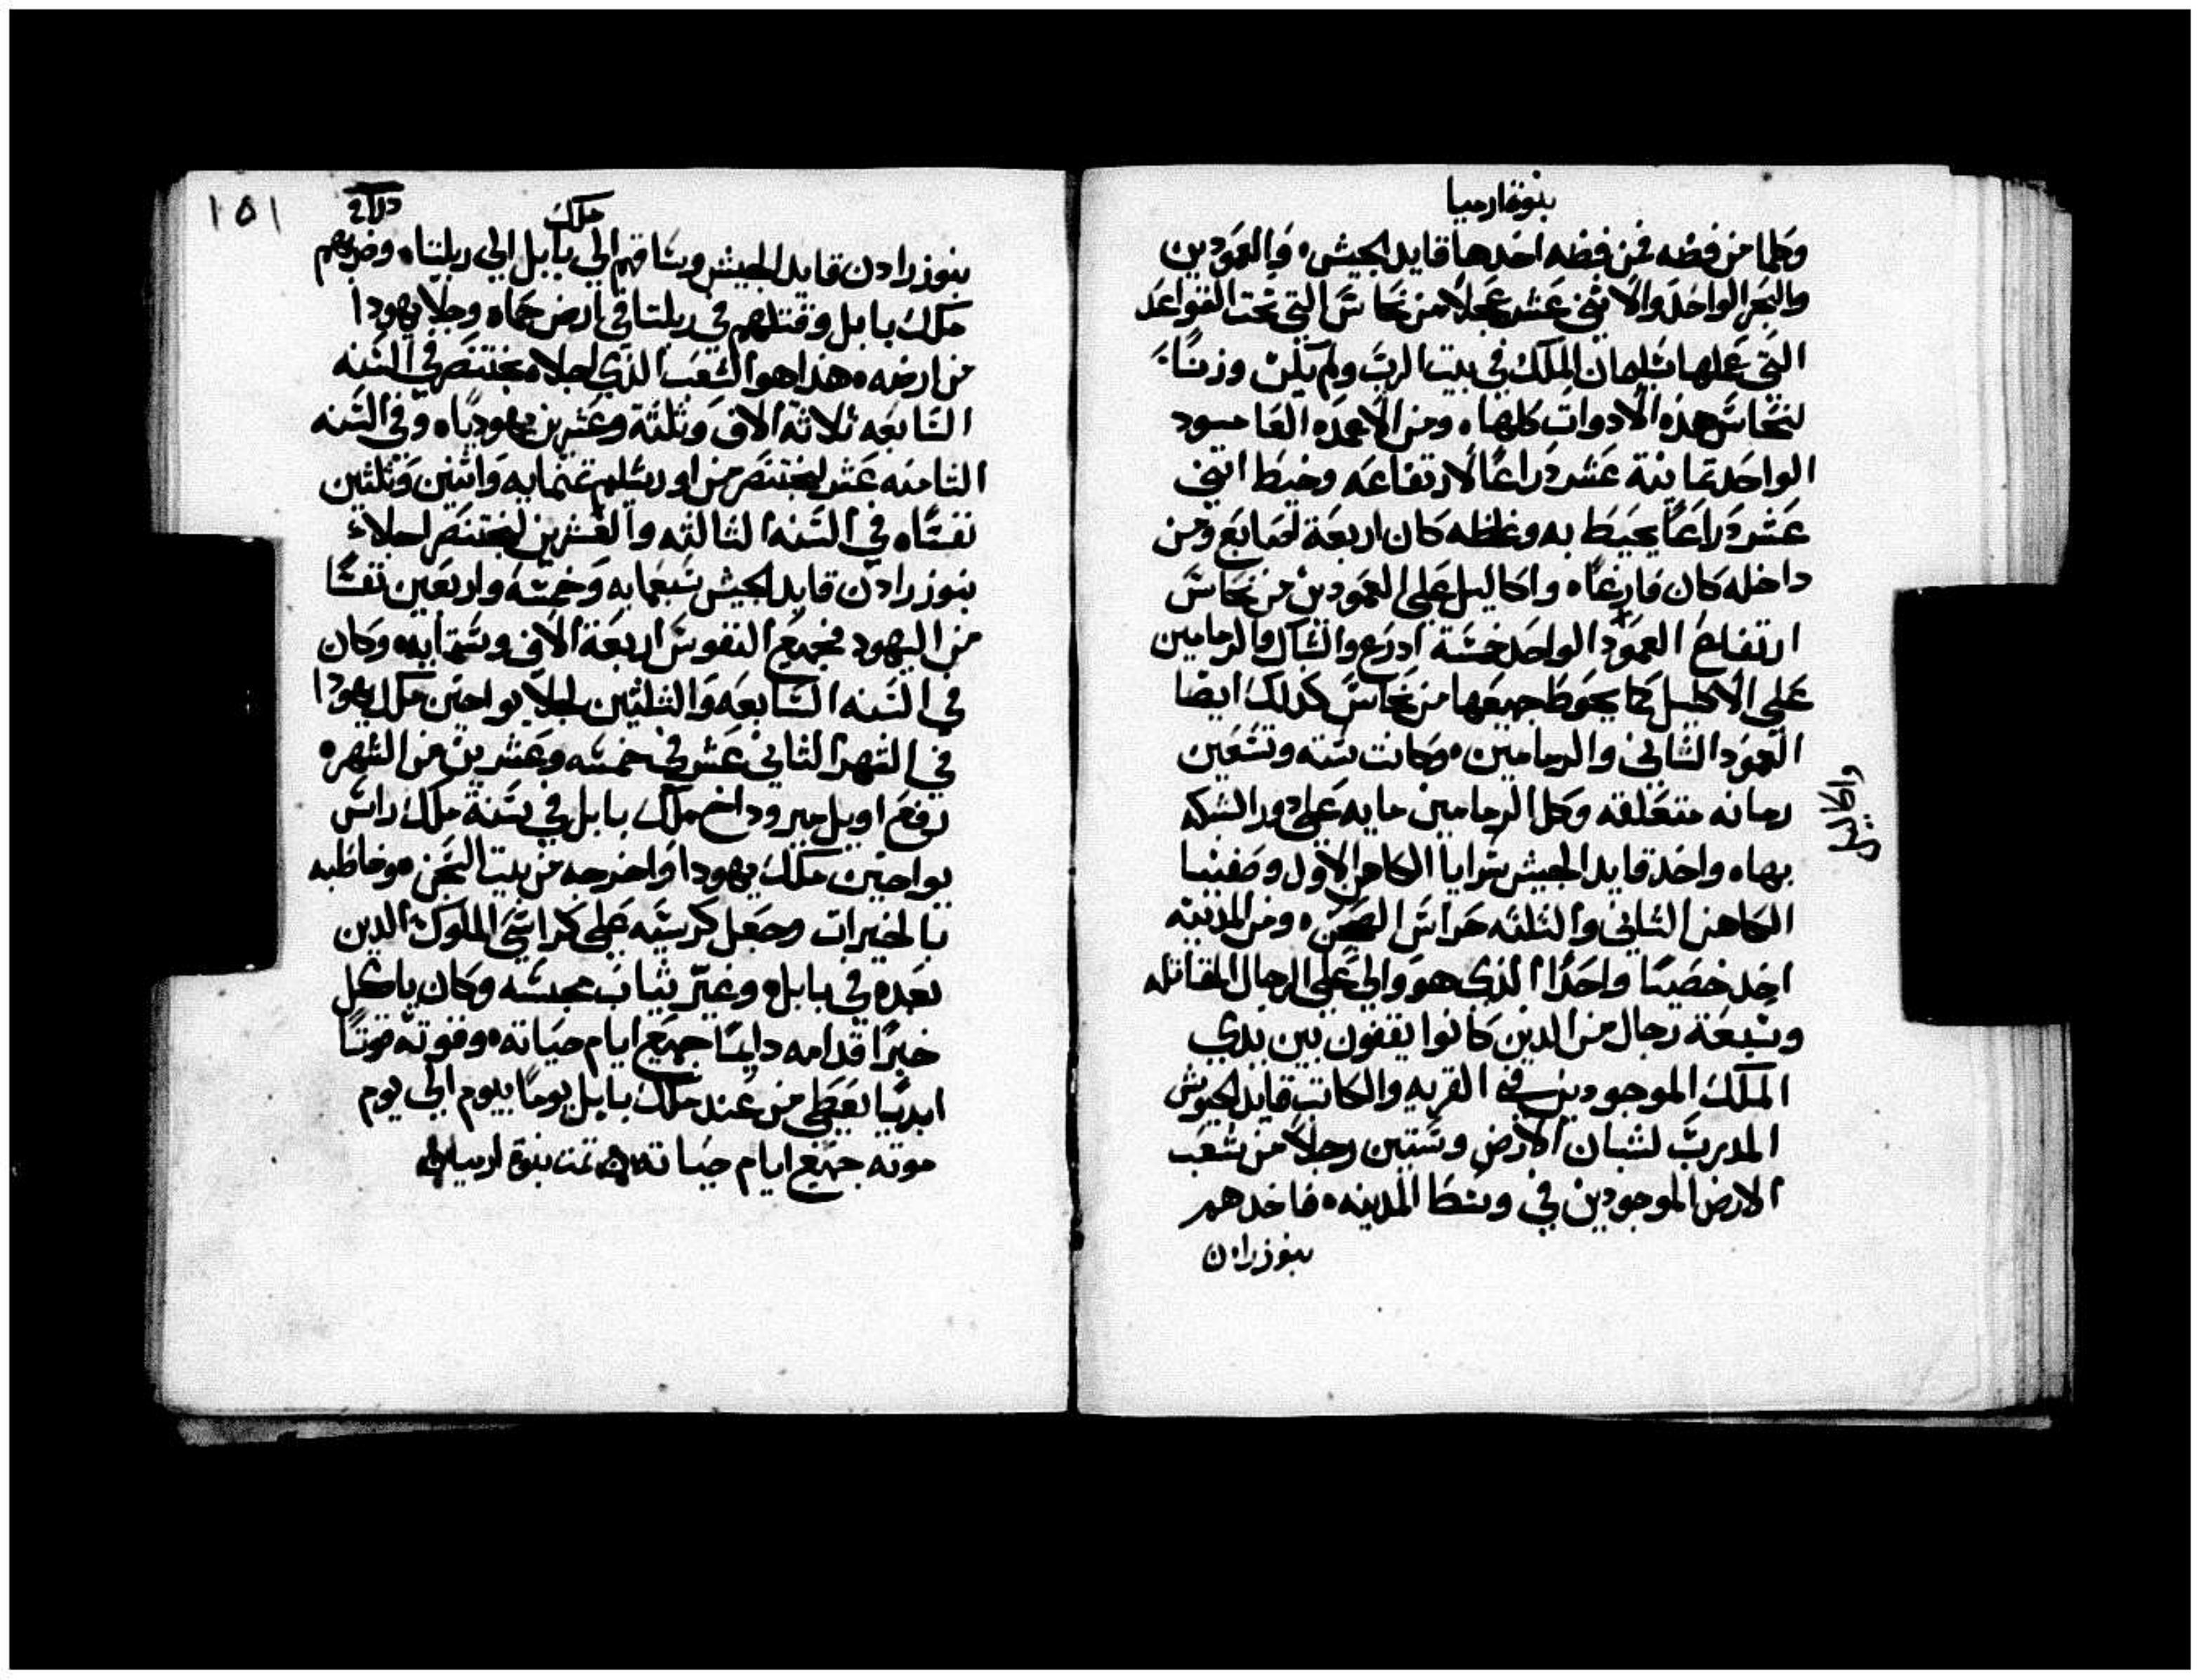 بنوة ارميا
وكلما من فضه فمن فضه اخدها قايد الجيش ۰ والعمودين
والبحر الواحد والاثني عشر عجلا من نحاس التي تحت القواعد
التي عملها سليمان الملك في بيت الرب ولم يكن وزنا
لنحاس هذه الادوات كلها ۰ ومن الاعمده العامود
الواحد تمانية عشر دراعا لارتفاعه وخيط اتني
عشر دراعا يحيط به وغلظه كان اربعة اصابع ومن
داخله كان فارغا ۰ واكاليل على العمودين من نحاس
ارتفاع العمود الواحد خمسة ادرع والشباك والرمامين
على الاكليل كما يحوط جميعها من نحاس كدلك ايضا
العمود الثاني والرمامين ۰ وكانت ستة وتسعين
رمانه متعلقه وكل الرمامين مايه على دور الشبكه
واكاليل
بها ۰ واخد قايد الجيش سرايا الكاهن الاول وصفنيا
الكاهن التاني والتلته حراس الصحن ۰ ومن المدينه
اخد خصيا واحدا الذي هو والي على الرجال المقاتله
وسبعة رجال من الدين كانوا يقفون بين يدي
الملك الموجودين في القريه والكاتب قايد الجيوش
المدرب لشبان الارض وستين رجلا من شعب
الارض الموجودين في وسط المدينه ۰ فاخدهم
بنوزرادن
١٥١
ملك
بنوزرادن قايد الجيش وساقهم الي بابل الي ريلتا ۰ وضربهم
ملك بابل وقتلهم في ريلتا في ارض حماه وجلا يهودا
من ارضه ۰ هذا هو الشعب الذي اجلاه بختنصر في السنه
السابعه ثلاثة الاف وثلثة وعشرين يهوديا ۰ وفي السنه
التامنه عشر لبختنصر من اورشليم تمنمايه واتنين وثلثين
نفسا ۰ في السنه الثالثه والعشرين لبختنصر اجلاء
بنوزرادن قايد الجيش سبعمايه وخمسة واربعين نفسا
من اليهود فجميع النفوس اربعة الاف وستمايه ۰ وكان
في السنه السابعه والثلثين لجلا يواحين ملك يهودا
في الشهر الثاني عشر في خمسه وعشرين من الشهر ۰
رفع اويل ميروداخ ملك بابل في سنة ملك راس
يواخين ملك يهودا واخرجه من بيت السجن ۰ وخاطبه
بالخيرات وجعل كرسيه على كراسي الملوك الدين
بعده في بابل ۰ وغير ثياب محبسه وكان ياكل
خبزا قدامه دايما جميع ايام حياته ۰ وقوته قوتا
ابديا يعطى من عند ملك بابل يوما بيوم الي يوم
موته جميع ايام حياته تمت بنوة ارميا